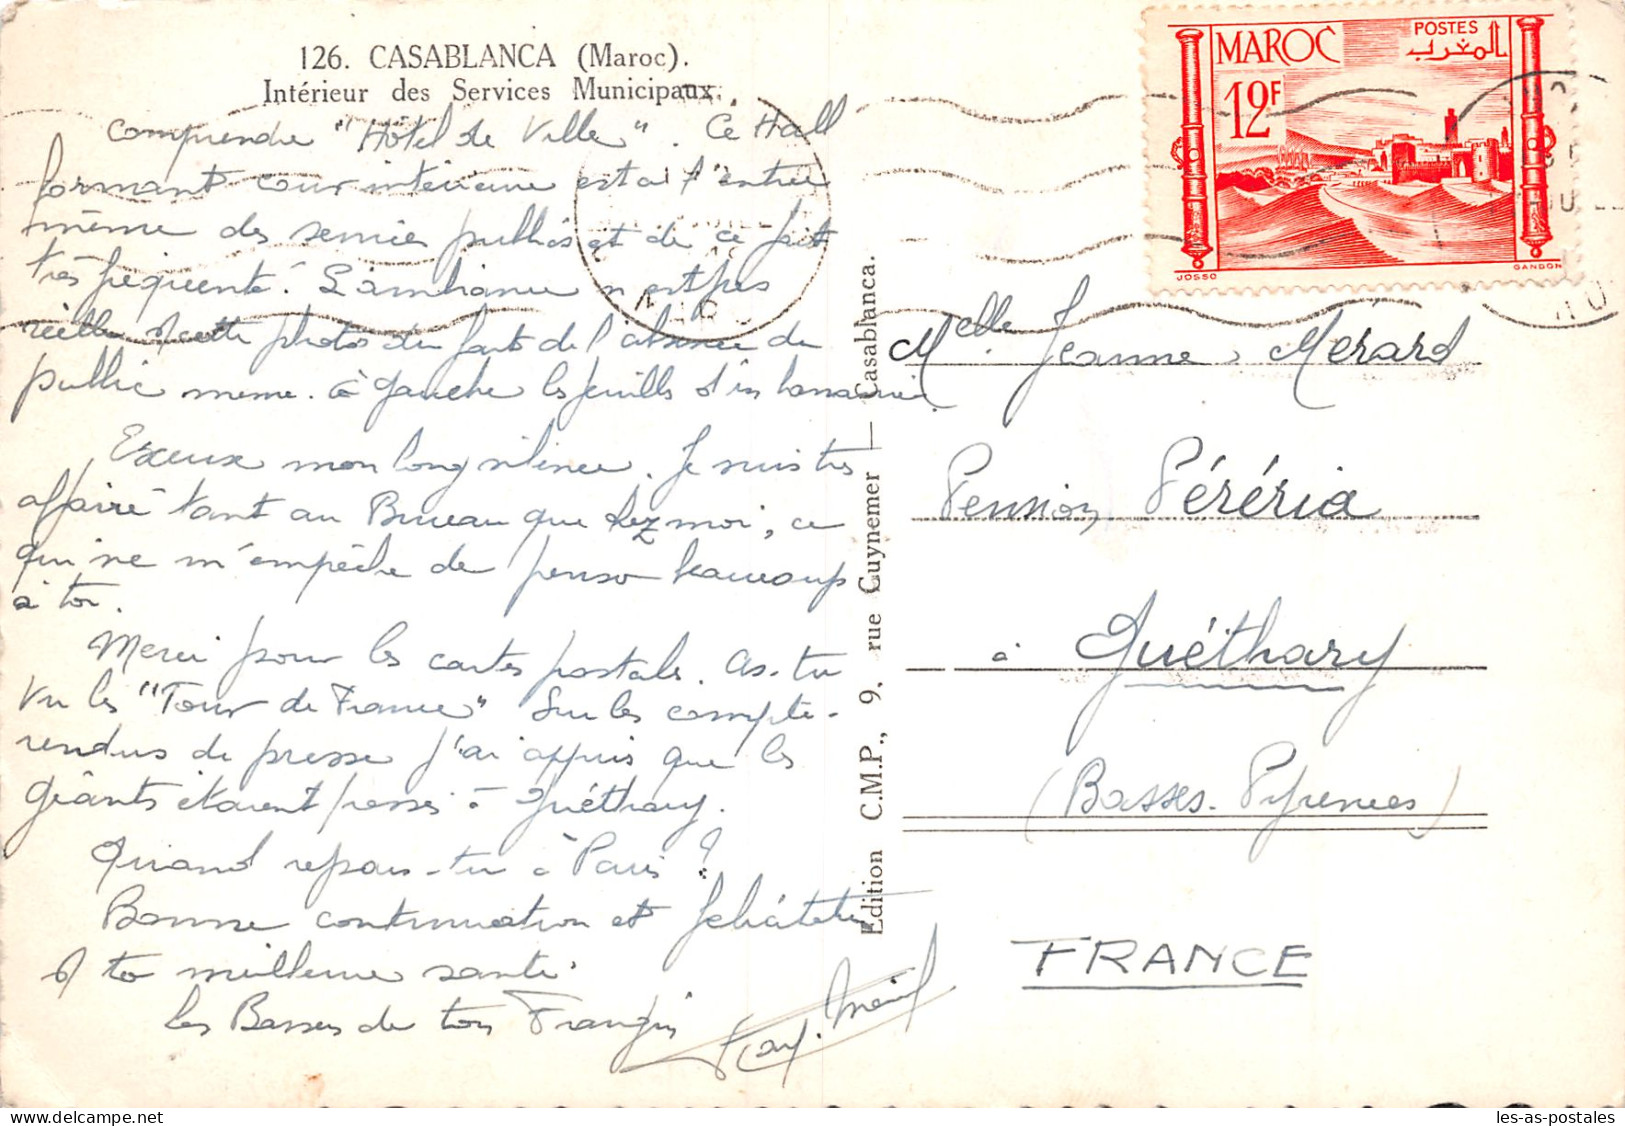 126. CASABLANCA (Maroc).
Intérieur des Services Municipaux.
Comprendre "Hôtel de Ville". Ce Hall
formant cour intérieure est à l'entrée
même des services publics et de ce fait
très fréquenté. L'ambiance n'est pas
réelle cette photo du fait de l'absence du
public même. à gauche les feuilles d'un bananier.
Excuse mon long silence. Je suis très
affairé tant au Bureau que chez moi, ce
qui ne m'empêche de penser beaucoup
à toi.
Merci pour les cartes postales. As-tu
vu les "Tour de France" Sur les compte-
rendus de presse j'ai appris que les
géants étaient passés à Guéthary.
Quand repars-tu à Paris?
Bonne continuation et félicitations
ta meilleure santé.
Les de ton
MAROC
POSTES
المغرب
12F
JOSSO
GANDON
Melle Jeanne Merard
Pension Péréria
à Guéthary
(Basses-Pyrenees)
FRANCE
Edition C.M.P., 9, rue Guynemer — Casablanca.
les-as-postales